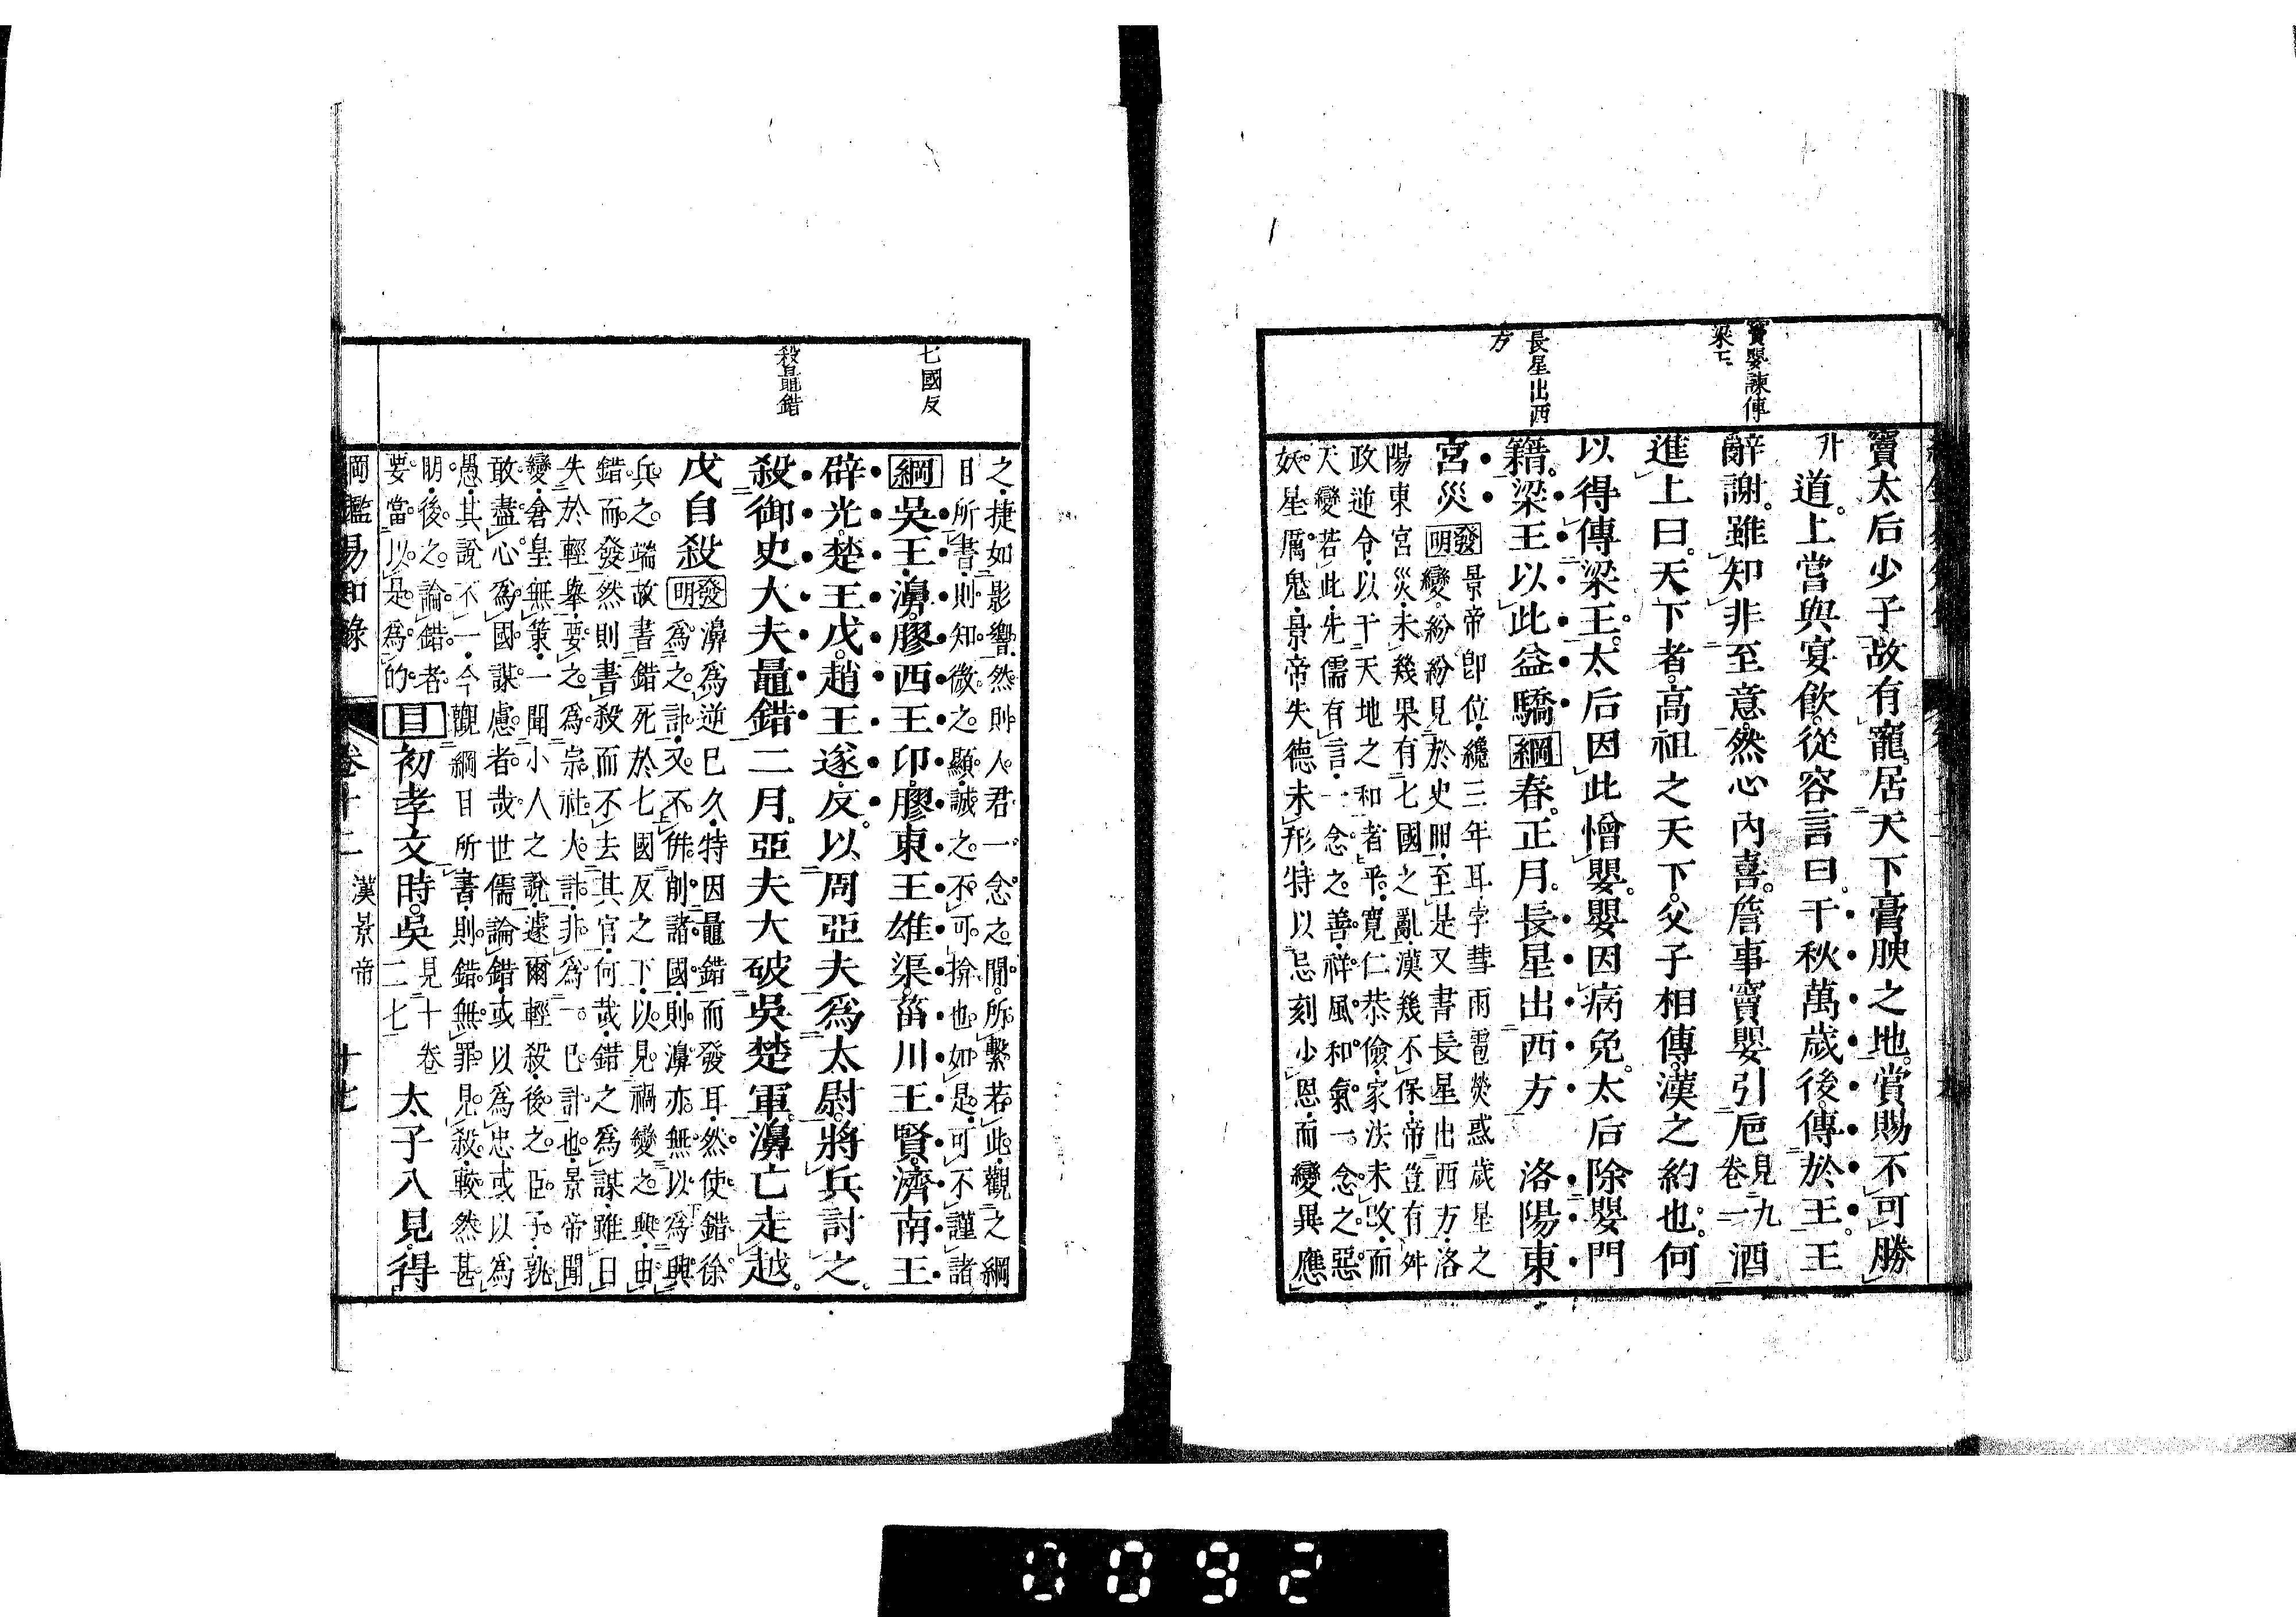 竇嬰諫傳
梁王
長星出西
方
竇太后少子故有寵。居天下膏腴之地。賞賜不可勝
道。上嘗與宴飲。從容言曰。千秋萬歲後。傳於王。王
辭謝。雖知非至意。然心內喜。詹事竇嬰引卮見九卷二酒
進上曰。天下者。高祖之天下。父子相傳。漢之約也。何
以得傳梁王。太后因此憎嬰。嬰因病免。太后除嬰門
籍。梁王以此益驕綱春。正月。長星出西方 洛陽東
宮災發明景帝卽位。纔三年耳。孛彗雨雹熒惑歲星之
變。紛紛見於史冊。至是又書長星出西方。洛
陽東宮災。未幾果有七國之亂。漢幾不保。帝豈有舛
政逆令。以干天地之和者乎。寬仁恭儉。家法未改。而
天變若此。先儒有言。一念之善。祥風和氣。一念之惡。
妖星厲鬼。景帝失德未形。特以忌刻少恩。而變異應
七國反
殺鼂錯
之。捷如影響。然則人君一念之間。所繫若此。觀之綱
目所書。則知微之顯。誠之不可揜也如是。可不謹諸
綱吳王濞。膠西王卬。膠東王雄渠。菑川王賢。濟南王
辟光。楚王戊。趙王遂反。以周亞夫爲太尉。將兵討之。
殺御史大夫鼂錯二月。亞夫大破吳楚軍。濞亡走越。
戊自殺發明濞爲逆已久。特因鼂錯而發耳。然使錯徐
爲之計。又不併削諸國。則濞亦無以爲興
兵之端。故書錯死於七國反之下。以見禍變之興。由
錯而發。然則書殺而不去其官。何哉。錯之爲謀。雖曰
失於輕舉。要之爲宗社大計。非爲一己計也。景帝聞
變。倉皇無策。一聞小人之說。遽爾輕殺。後之臣子。孰
敢盡心。爲國謀慮者哉世儒論錯。或以爲忠或以爲
愚。其說不一。今觀綱目所書。則錯無罪見殺。較然甚
明。後之論錯者。
要當以是爲的。目初孝文時。吳見十卷二七太子入見。得
綱鑑易知錄 卷十二 漢景帝 十七
0092